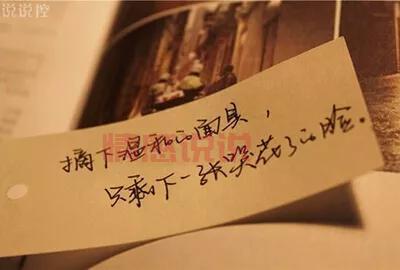 说说控
摘下温和的面具，
只剩下一张哭花了的脸。
情感说说